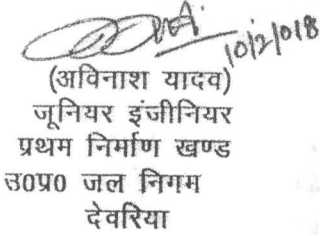 10/2/018
(अविनाश यादव)
जूनियर इंजीनियर
प्रथम निर्माण खण्ड
उ0प्र0 जल निगम
देवरिया